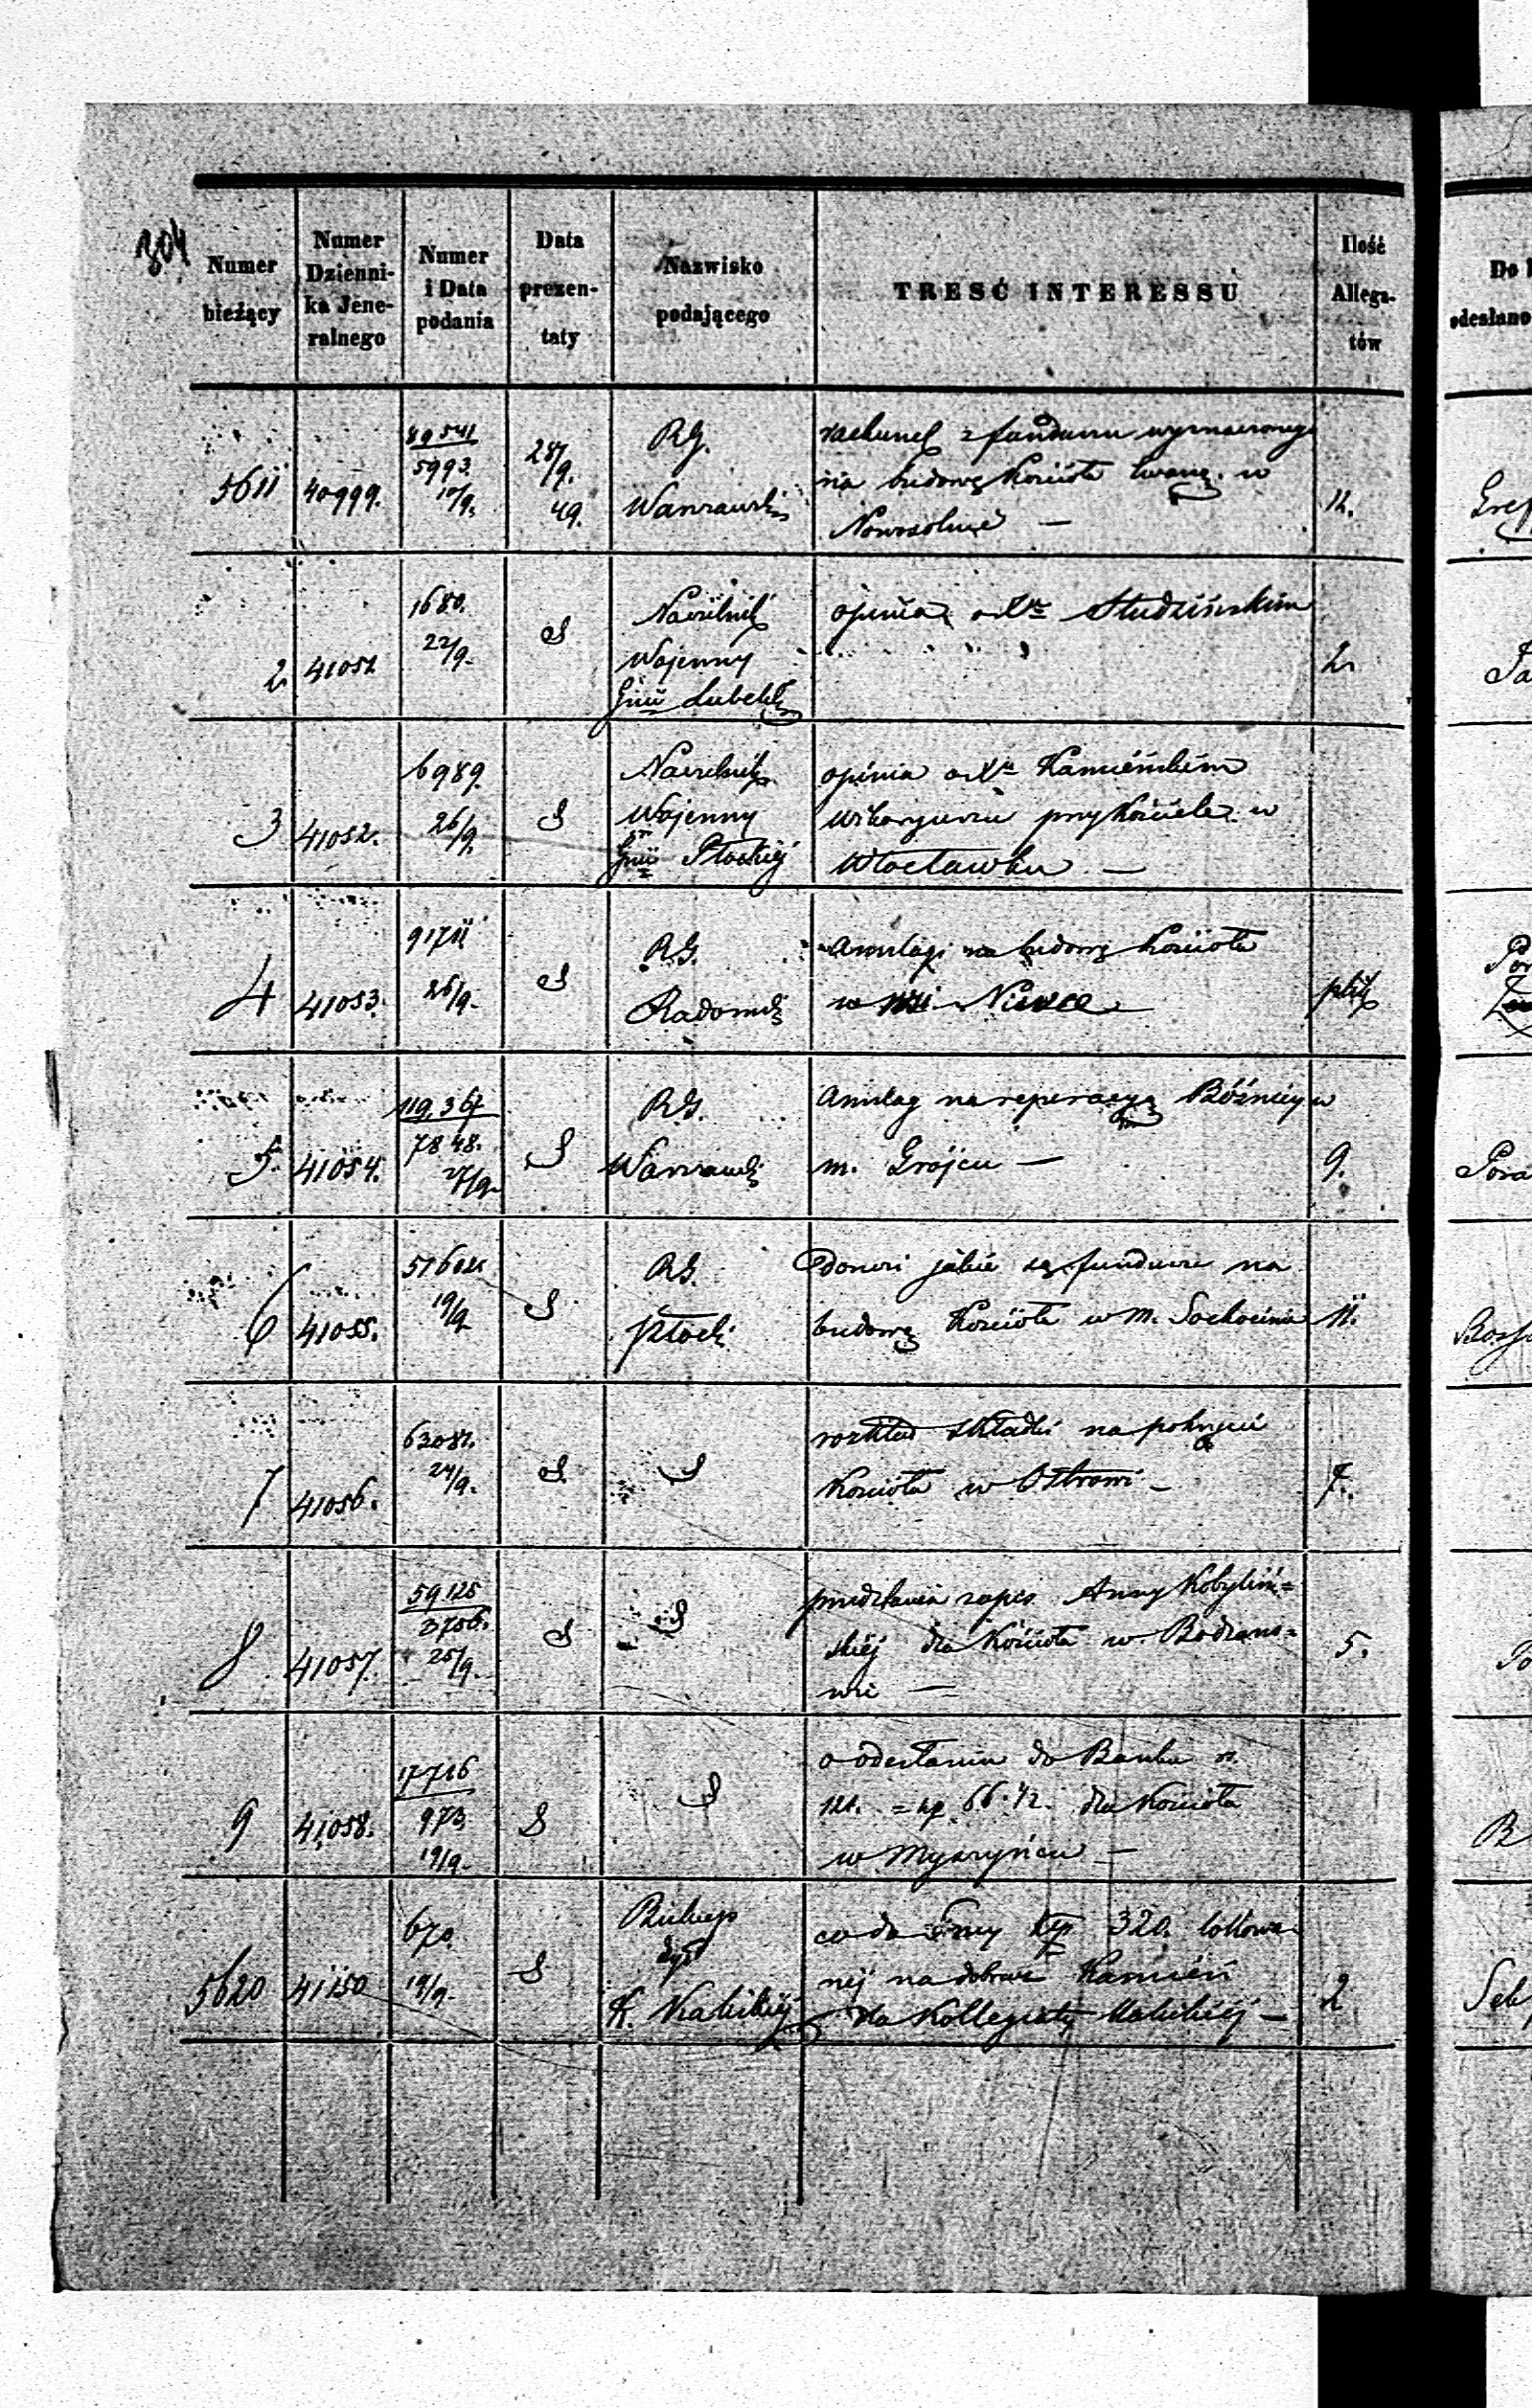 304
Numer bieżący
Numer Dzienni-
ka Jene-
ralnego
Numer
i Data
podania
Data
prezen-
taty
Nazwisko
podającego
TREŚĆ INTERESSU
Ilość
Allega-
tów
Do
odesłano
5611 40999. 89541
5993.
10/9. 28/9.
49. RG.
Warszawski
rachunek z funduszu wyznaczonego
na budowę Kościoła w
12.
2 41051 1680.
22/9. S Naczelnik
Wojenny
Gnii Lubelsk
opinia o Xie Studzińskim
2
3 41052. 6989.
26/9. S Naczelnik
Wojenny
Gnii Płockiej
opinia o Xie Kamieńskim
Wikaryuszu przy Kościele w
Włocławku —
4 41053. 91711
26/9. S RG.
Radomski
Anszlagi na budowę Kościoła
w wsi —
plik
5. 41054. 119,367
7848.
27/9. S RG.
Warszawski
Anszlag na reperacyą Bóżnicy w
m. Grójcu —
9.
6 41055. 19/9. S RG.
Płocki
Donosi jakie są fundusze na
budowę Kościoła w m. Sochocinie
11.
7 41056. 24/9. S S
rozkład składki na pokrycie
Kościoła w Ostrowi —
7.
8 41057. 59125
3756.
25/9. S S
przedstawia zapis Anny Kobyliń=
skiej dla Kościoła w Bodzano=
wie —
5.
9 41058. 17716
973
19/9. S S
o odesłaniu do Banku rs.
121. = kp 66 1/2. dla Kościoła
w Myszyńcu —
5620 41150 670.
19/9. S K. Kaliskiej
co do Sumy złp 320. lokowa
nej na dobrach Kamień
dla Kollegiaty Kaliskiej —
2